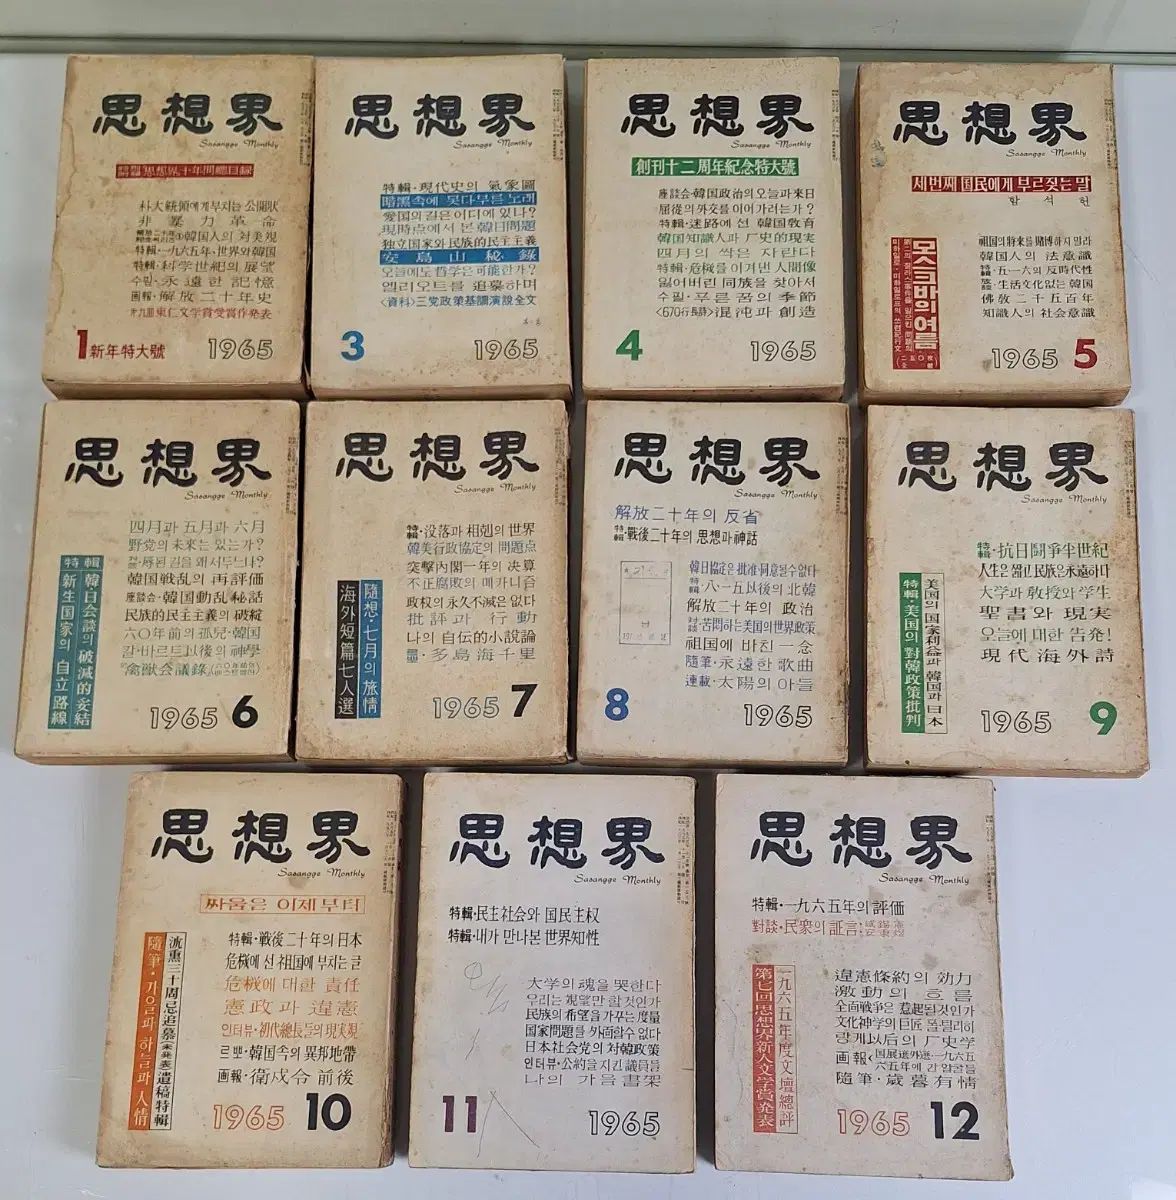 思想界
Sasangge Monthly
思想界十年間總目録
朴大統領에게 부치는 公開狀
非暴力革命
韓国人의 対美観
特輯·一九六五年·世界와 韓国
特輯·科学世紀의 展望
수필·永遠한 記憶
画報·解放二十年史
第九回東仁文学賞受賞作発表
1 新年特大號 1965
思想界
Sasangge Monthly
特輯·現代史의 氣象圖
暗黑속에 못다부른 노래
愛国의 길은 어디에 있나?
現時点에서 본 韓日問題
独立国家와 民族的民主主義
安島山秘錄
오늘에도 哲学은 可能한가?
엘리오트를 追慕하며
<資料>三党政策基調演說全文
3 1965
思想界
Sasangge Monthly
創刊十二周年紀念特大號
座談会·韓国政治의 오늘과 来日
屈從의 外交를 이어가려는가?
特輯·迷路에 선 韓国敎育
韓国知識人과 厂史的現実
四月의 싹은 자란다
特輯·危機를 이겨낸 人間像
잃어버린 同族을 찾아서
수필·푸른 꿈의 季節
<670行長詩>混沌과 創造
4 1965
思想界
Sasangge Monthly
세번째 国民에게 부르짖는 말
함석헌
모스크바의 여름
祖国의 將来를 賭博하지 말라
韓国人의 法意識
特輯·五·一六의 反時代性
生活文化없는 韓国
佛敎二千五百年
知識人의 社会意識
1965 5
思想界
Sasangge Monthly
特輯 韓日会談의 破滅的妥結
新生国家의 自立路線
四月과 五月과 六月
野党의 未来는 있는가?
辱된 길을 왜 서두느냐?
韓国戦乱의 再評価
座談会·韓国動乱秘話
民族的民主主義의 破綻
六〇年前의 孤兒·韓国
칼·바르트以後의 神學
禽獸会議錄
1965 6
思想界
Sasangge Monthly
隨想·七月의 旅情
海外短篇七人選
特輯·没落과 相剋의 世界
韓美行政協定의 問題点
突擊內閣一年의 決算
不正腐敗의 메카니즘
政权의 永久不滅은 없다
批評과 行動
나의 自伝的小說論
多島海千里
1965 7
思想界
Sasangge Monthly
解放二十年의 反省
特輯·戰後二十年의 思想과 神話
韓日協定은 批准·同意될수없다
特輯·八·一五以後의 北韓
解放二十年의 政治
対談 苦悶하는 美国의 世界政策
祖国에 바친 一念
隨筆·永遠한 歌曲
連載·太陽의 아들
8 1965
思想界
Sasangge Monthly
美国의 国家利益과 韓国과 日本
特輯·美国의 對韓政策批判
特輯·抗日鬪爭半世紀
人生은 짧고 民族은 永遠하다
大学과 敎授와 学生
聖書와 現実
오늘에 대한 告発!
現代海外詩
1965 9
思想界
Sasangge Monthly
싸움은 이제부터
洑熏三十周忌追慕(未発表)遺稿特輯
隨筆·가을과 하늘과 人情
特輯·戰後二十年의 日本
危機에 선 祖国에 부치는 글
危機에 대한 責任
憲政과 違憲
인터뷰·初代總長들의 現実観
르뽀·韓国속의 異邦地帶
画報·衛戍令前後
1965 10
思想界
Sasangge Monthly
特輯·民主社会와 国民主权
特輯·내가 만나본 世界知性
大学의 魂을 哭한다
우리는 視望만 할 것인가
民族의 希望을 가꾸는 度量
国家問題를 外面할수 없다
日本社会党의 対韓政策
인터뷰·公約을 지킨 議員들
나의 가을書架
11 1965
思想界
Sasangge Monthly
特輯·一九六五年의 評価
對談·民衆의 証言
一九六五年度文壇總評
第七回思想界新人文学賞発表
違憲條約의 効力
激動의 흐름
全面戦爭은 惹起될것인가
文化神学의 巨匠 폴 틸리히
랑케以后의 厂史学
画報<国展選外選·一九六五
六五年에 간 얼굴들
隨筆·歲暮有情
1965 12